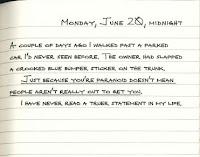 MONDAY, JUNE 20, MIDNIGHT
A COUPLE OF DAYS AGO I WALKED PAST A PARKED
CAR I'D NEVER SEEN BEFORE. THE OWNER HAD SLAPPED
A CROOKED BLUE BUMPER STICKER ON THE TRUNK.
JUST BECAUSE YOU'RE PARANOID DOESN'T MEAN
PEOPLE AREN'T REALLY OUT TO GET YOU.
I HAVE NEVER READ A TRUER STATEMENT IN MY LIFE.